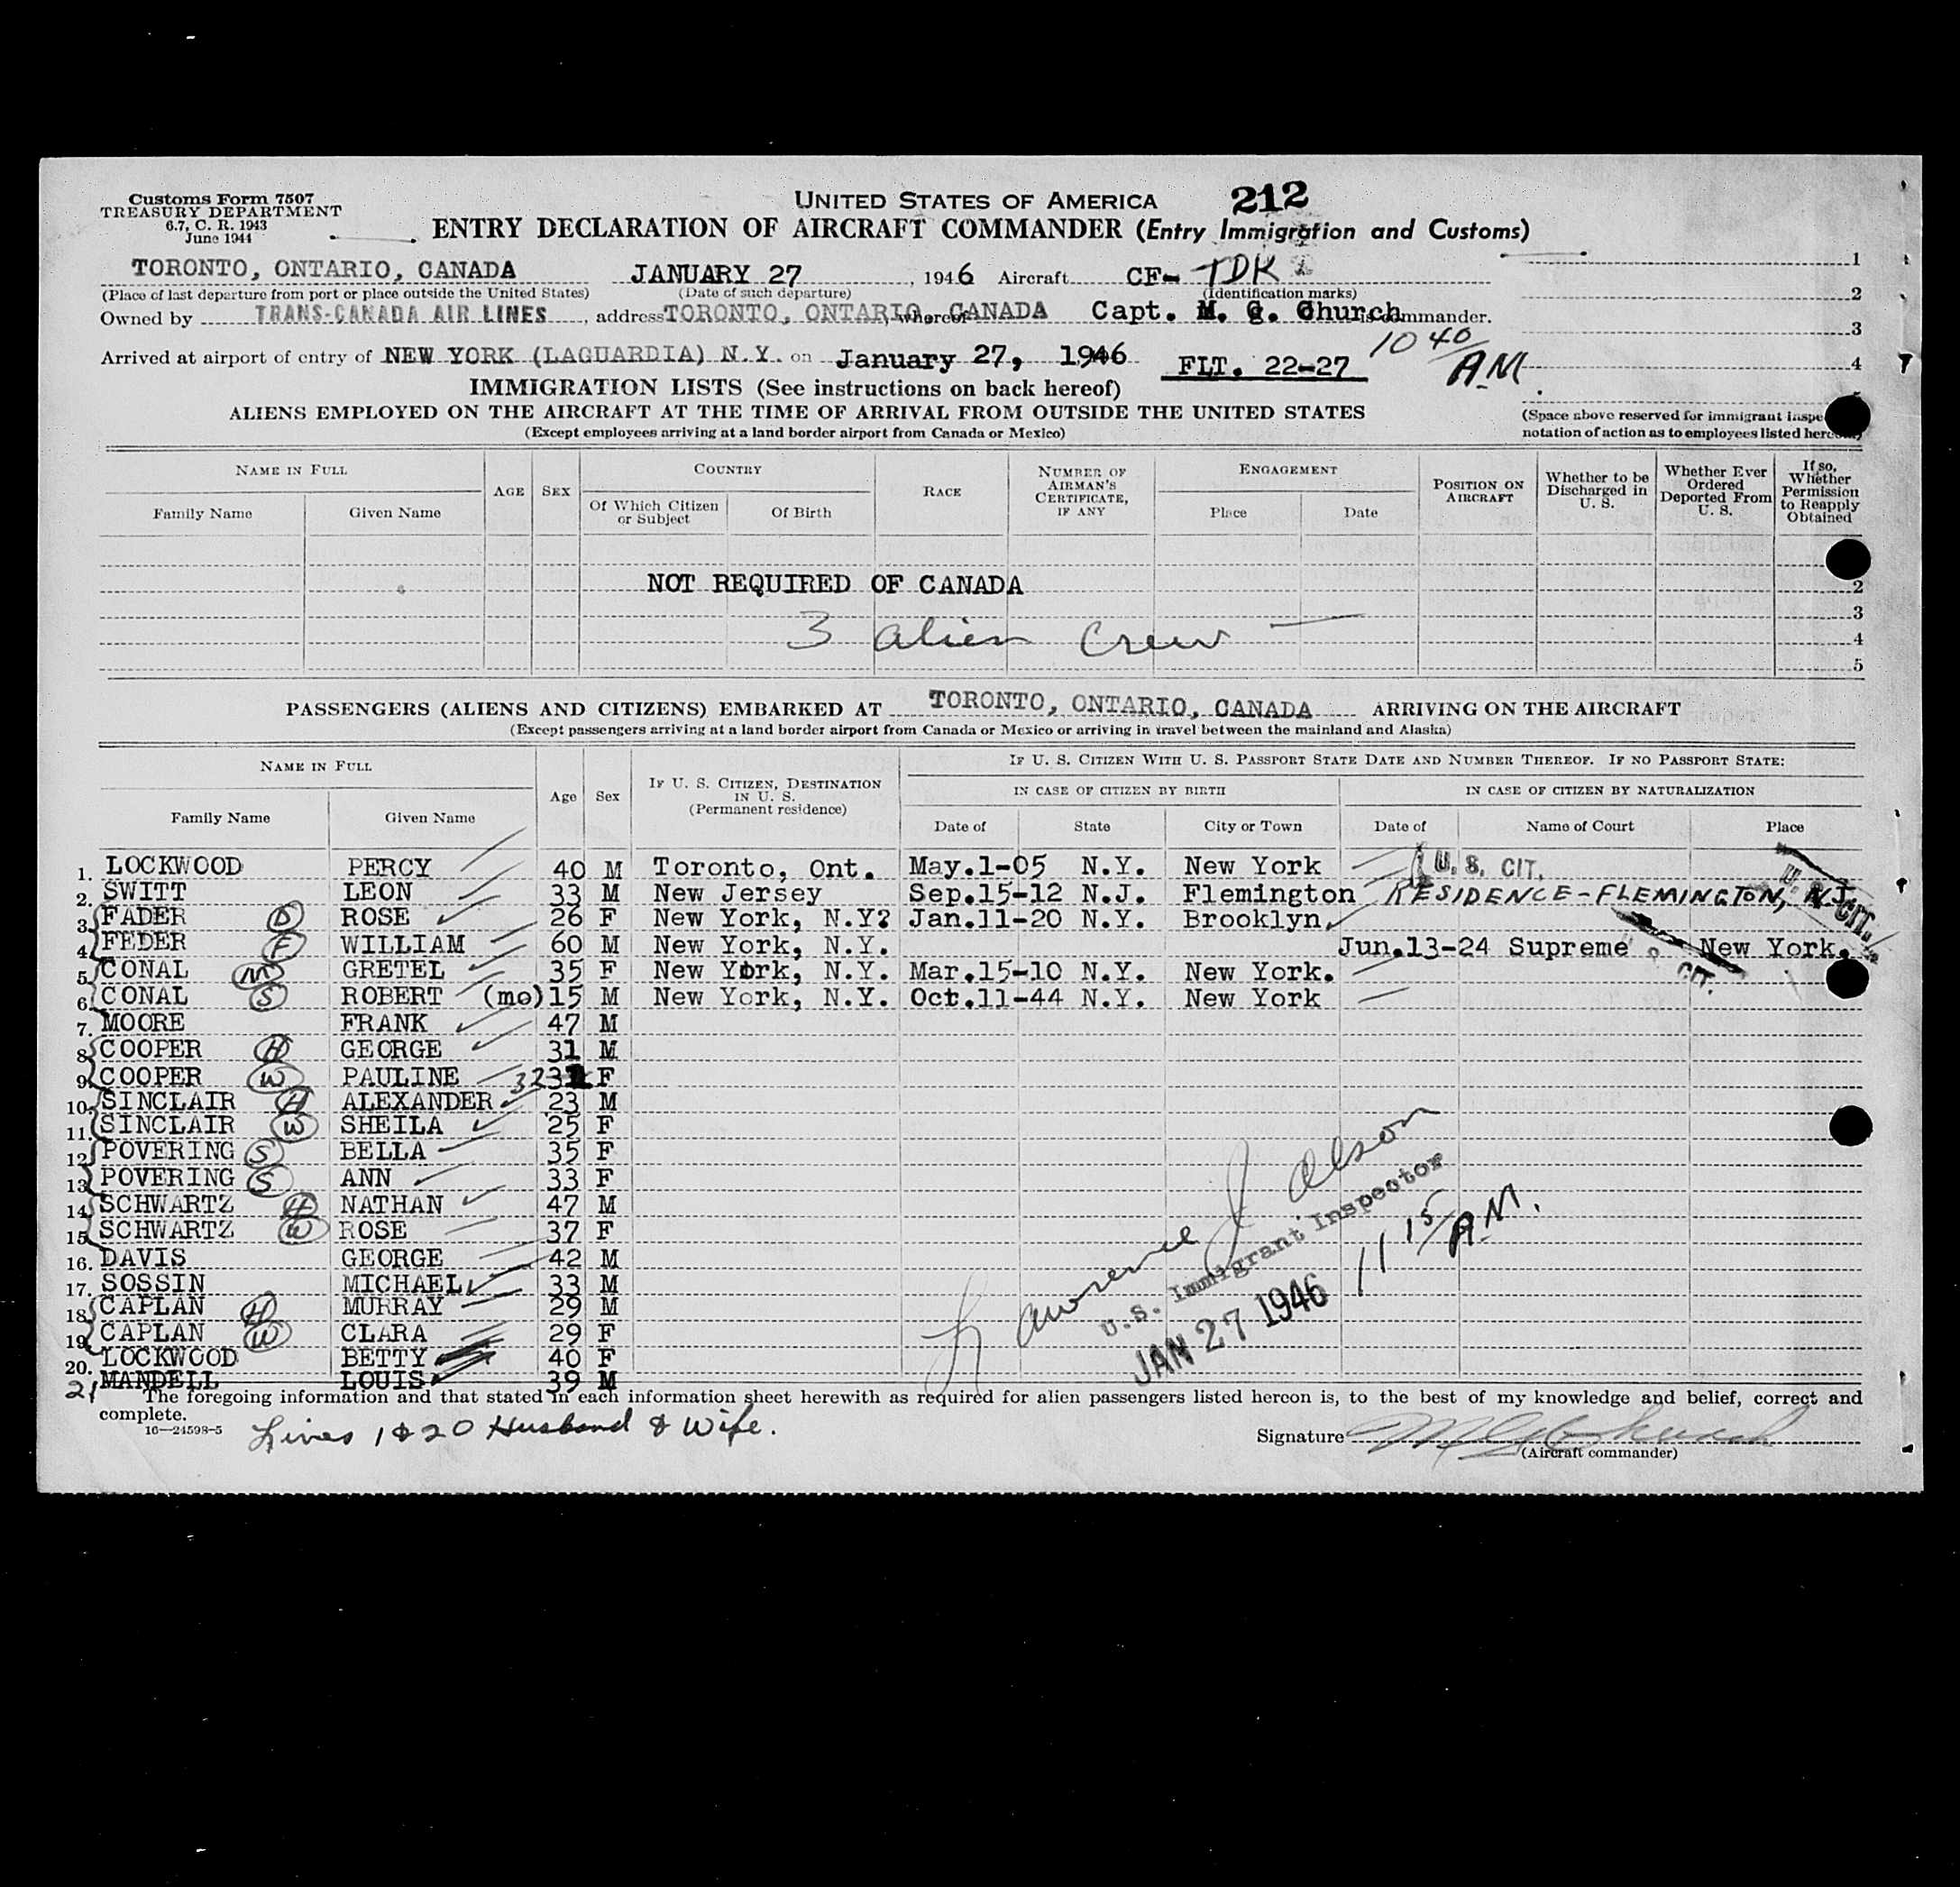 Customs Form 7507
TREASURY DEPARTMENT
6.7, C. R. 1943
June 1944
UNITED STATES OF AMERICA 212
ENTRY DECLARATION OF AIRCRAFT COMMANDER (Entry Immigration and Customs)
TORONTO, ONTARIO, CANADA JANUARY 27, 1946 Aircraft CF- TDK
(Place of last departure from port or place outside the United States) (Date of such departure) (Identification marks)
Owned by TRANS-CANADA AIR LINES, address TORONTO, ONTARIO, CANADA whereof Capt. M. G. Church is commander.
Arrived at airport of entry of NEW YORK (LAGUARDIA) N.Y. on January 27, 1946 FLT. 22-27 10 40/AM
1
2
3
4
5
IMMIGRATION LISTS (See instructions on back hereof)
ALIENS EMPLOYED ON THE AIRCRAFT AT THE TIME OF ARRIVAL FROM OUTSIDE THE UNITED STATES
(Except employees arriving at a land border airport from Canada or Mexico)
(Space above reserved for immigrant inspe
notation of action as to employees listed hereon)
NAME IN FULL AGE SEX COUNTRY RACE NUMBER OF AIRMAN'S CERTIFICATE, IF ANY ENGAGEMENT POSITION ON AIRCRAFT Whether to be Discharged in U. S. Whether Ever Ordered Deported From U. S. If so, Whether Permission to Reapply Obtained
Family Name Given Name Of Which Citizen or Subject Of Birth Place Date
NOT REQUIRED OF CANADA 2
3
3 alien crew — 4
5
PASSENGERS (ALIENS AND CITIZENS) EMBARKED AT TORONTO, ONTARIO, CANADA ARRIVING ON THE AIRCRAFT
(Except passengers arriving at a land border airport from Canada or Mexico or arriving in travel between the mainland and Alaska)
NAME IN FULL Age Sex IF U. S. CITIZEN, DESTINATION IN U. S. (Permanent residence) IF U. S. CITIZEN WITH U. S. PASSPORT STATE DATE AND NUMBER THEREOF. IF NO PASSPORT STATE:
IN CASE OF CITIZEN BY BIRTH IN CASE OF CITIZEN BY NATURALIZATION
Family Name Given Name Date of State City or Town Date of Name of Court Place
1. LOCKWOOD PERCY 40 M Toronto, Ont. May.1-05 N.Y. New York U. S. CIT.
2. SWITT LEON 33 M New Jersey Sep.15-12 N.J. Flemington RESIDENCE-FLEMINGTON, N.J. U. S. CIT.
3. FADER D ROSE 26 F New York, N.Y? Jan.11-20 N.Y. Brooklyn
4. FEDER F WILLIAM 60 M New York, N.Y. Jun.13-24 Supreme New York.
5. CONAL M GRETEL 35 F New York, N.Y. Mar.15-10 N.Y. New York. U. S. CIT.
6. CONAL S ROBERT (mo) 15 M New York, N.Y. Oct.11-44 N.Y. New York
7. MOORE FRANK 47 M
8. COOPER H GEORGE 31 M
9. COOPER W PAULINE 32 F
10. SINCLAIR H ALEXANDER 23 M
11. SINCLAIR W SHEILA 25 F
12. POVERING S BELLA 35 F
13. POVERING S ANN 33 F
14. SCHWARTZ H NATHAN 47 M
15. SCHWARTZ W ROSE 37 F
16. DAVIS GEORGE 42 M
17. SOSSIN MICHAEL 33 M
18. CAPLAN H MURRAY 29 M
19. CAPLAN W CLARA 29 F
20. LOCKWOOD BETTY 40 F
21 MANDELL LOUIS 39 M
Lawrence J Olson
U.S. Immigrant Inspector
JAN 27 1946
11 15/A.M.
The foregoing information and that stated in each information sheet herewith as required for alien passengers listed hereon is, to the best of my knowledge and belief, correct and
complete.
16—24598-5 Lines 1 & 20 Husband & Wife.
Signature M G Church
(Aircraft commander)